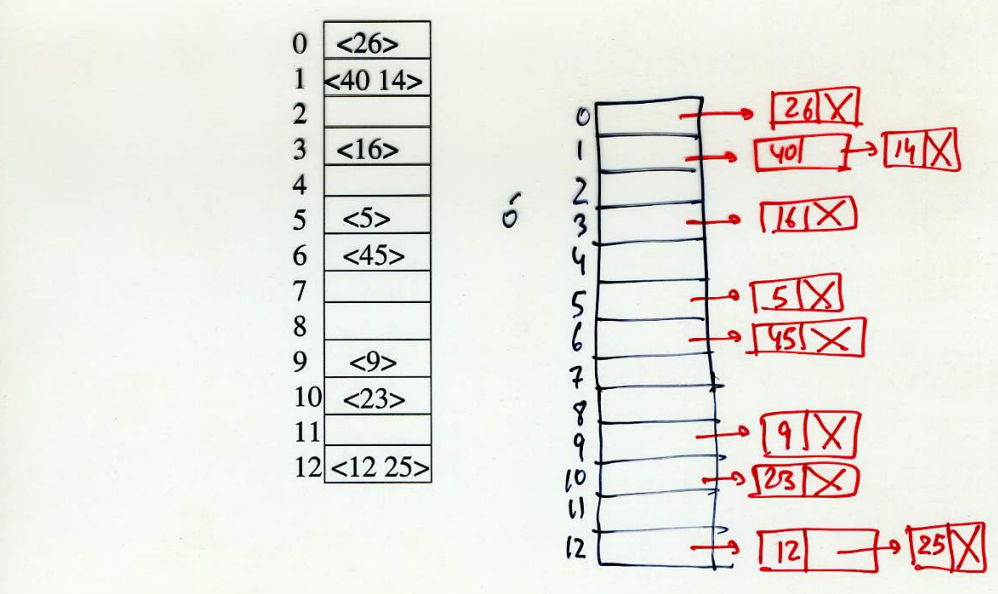 0 <26>
1 <40 14>
2
3 <16>
4
5 <5>
6 <45>
7
8
9 <9>
10 <23>
11
12 <12 25>
ó
0 26 X
1 40 14 X
2
3 16 X
4
5 5 X
6 45 X
7
8
9 9 X
10 23 X
11
12 12 25 X